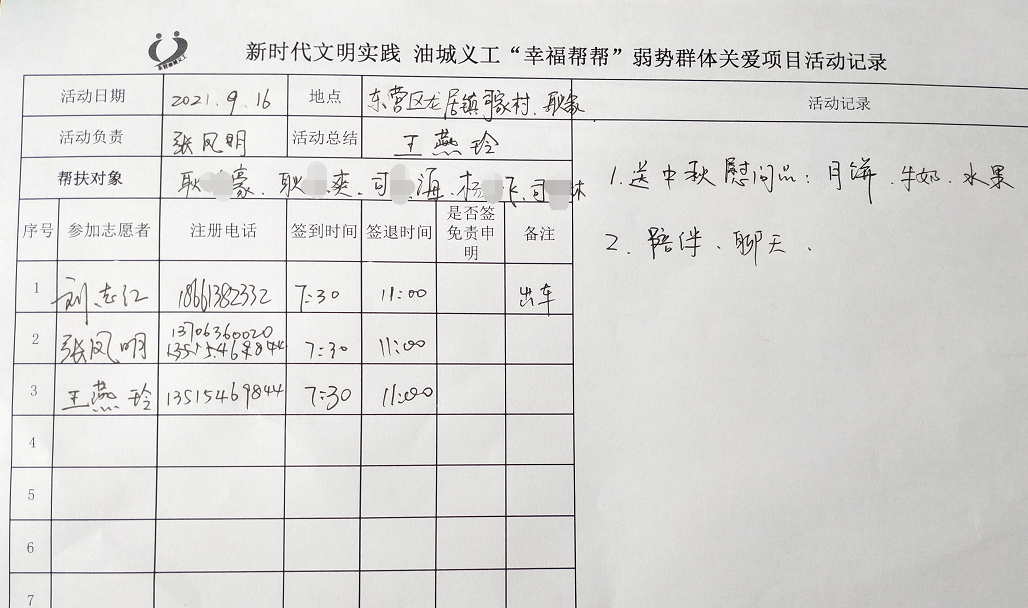 新时代文明实践 油城义工“幸福帮帮”弱势群体关爱项目活动记录
活动日期 2021.9.16 地点 东营区龙居镇 家村、耿家 活动记录
活动负责 张凤明 活动总结 王燕玲
帮扶对象 耿 豪、耿 爽、司 海、杨 飞、司 林
1.送中秋慰问品：月饼、牛奶、水果
2.陪伴、聊天、
序号 参加志愿者 注册电话 签到时间 签退时间 是否签免责申明 备注
1 刘志红 18661382332 7:30 11:00 出车
2 张凤明 13706360020 13515469844 7:30 11:00
3 王燕玲 13515469844 7:30 11:00
4
5
6
7